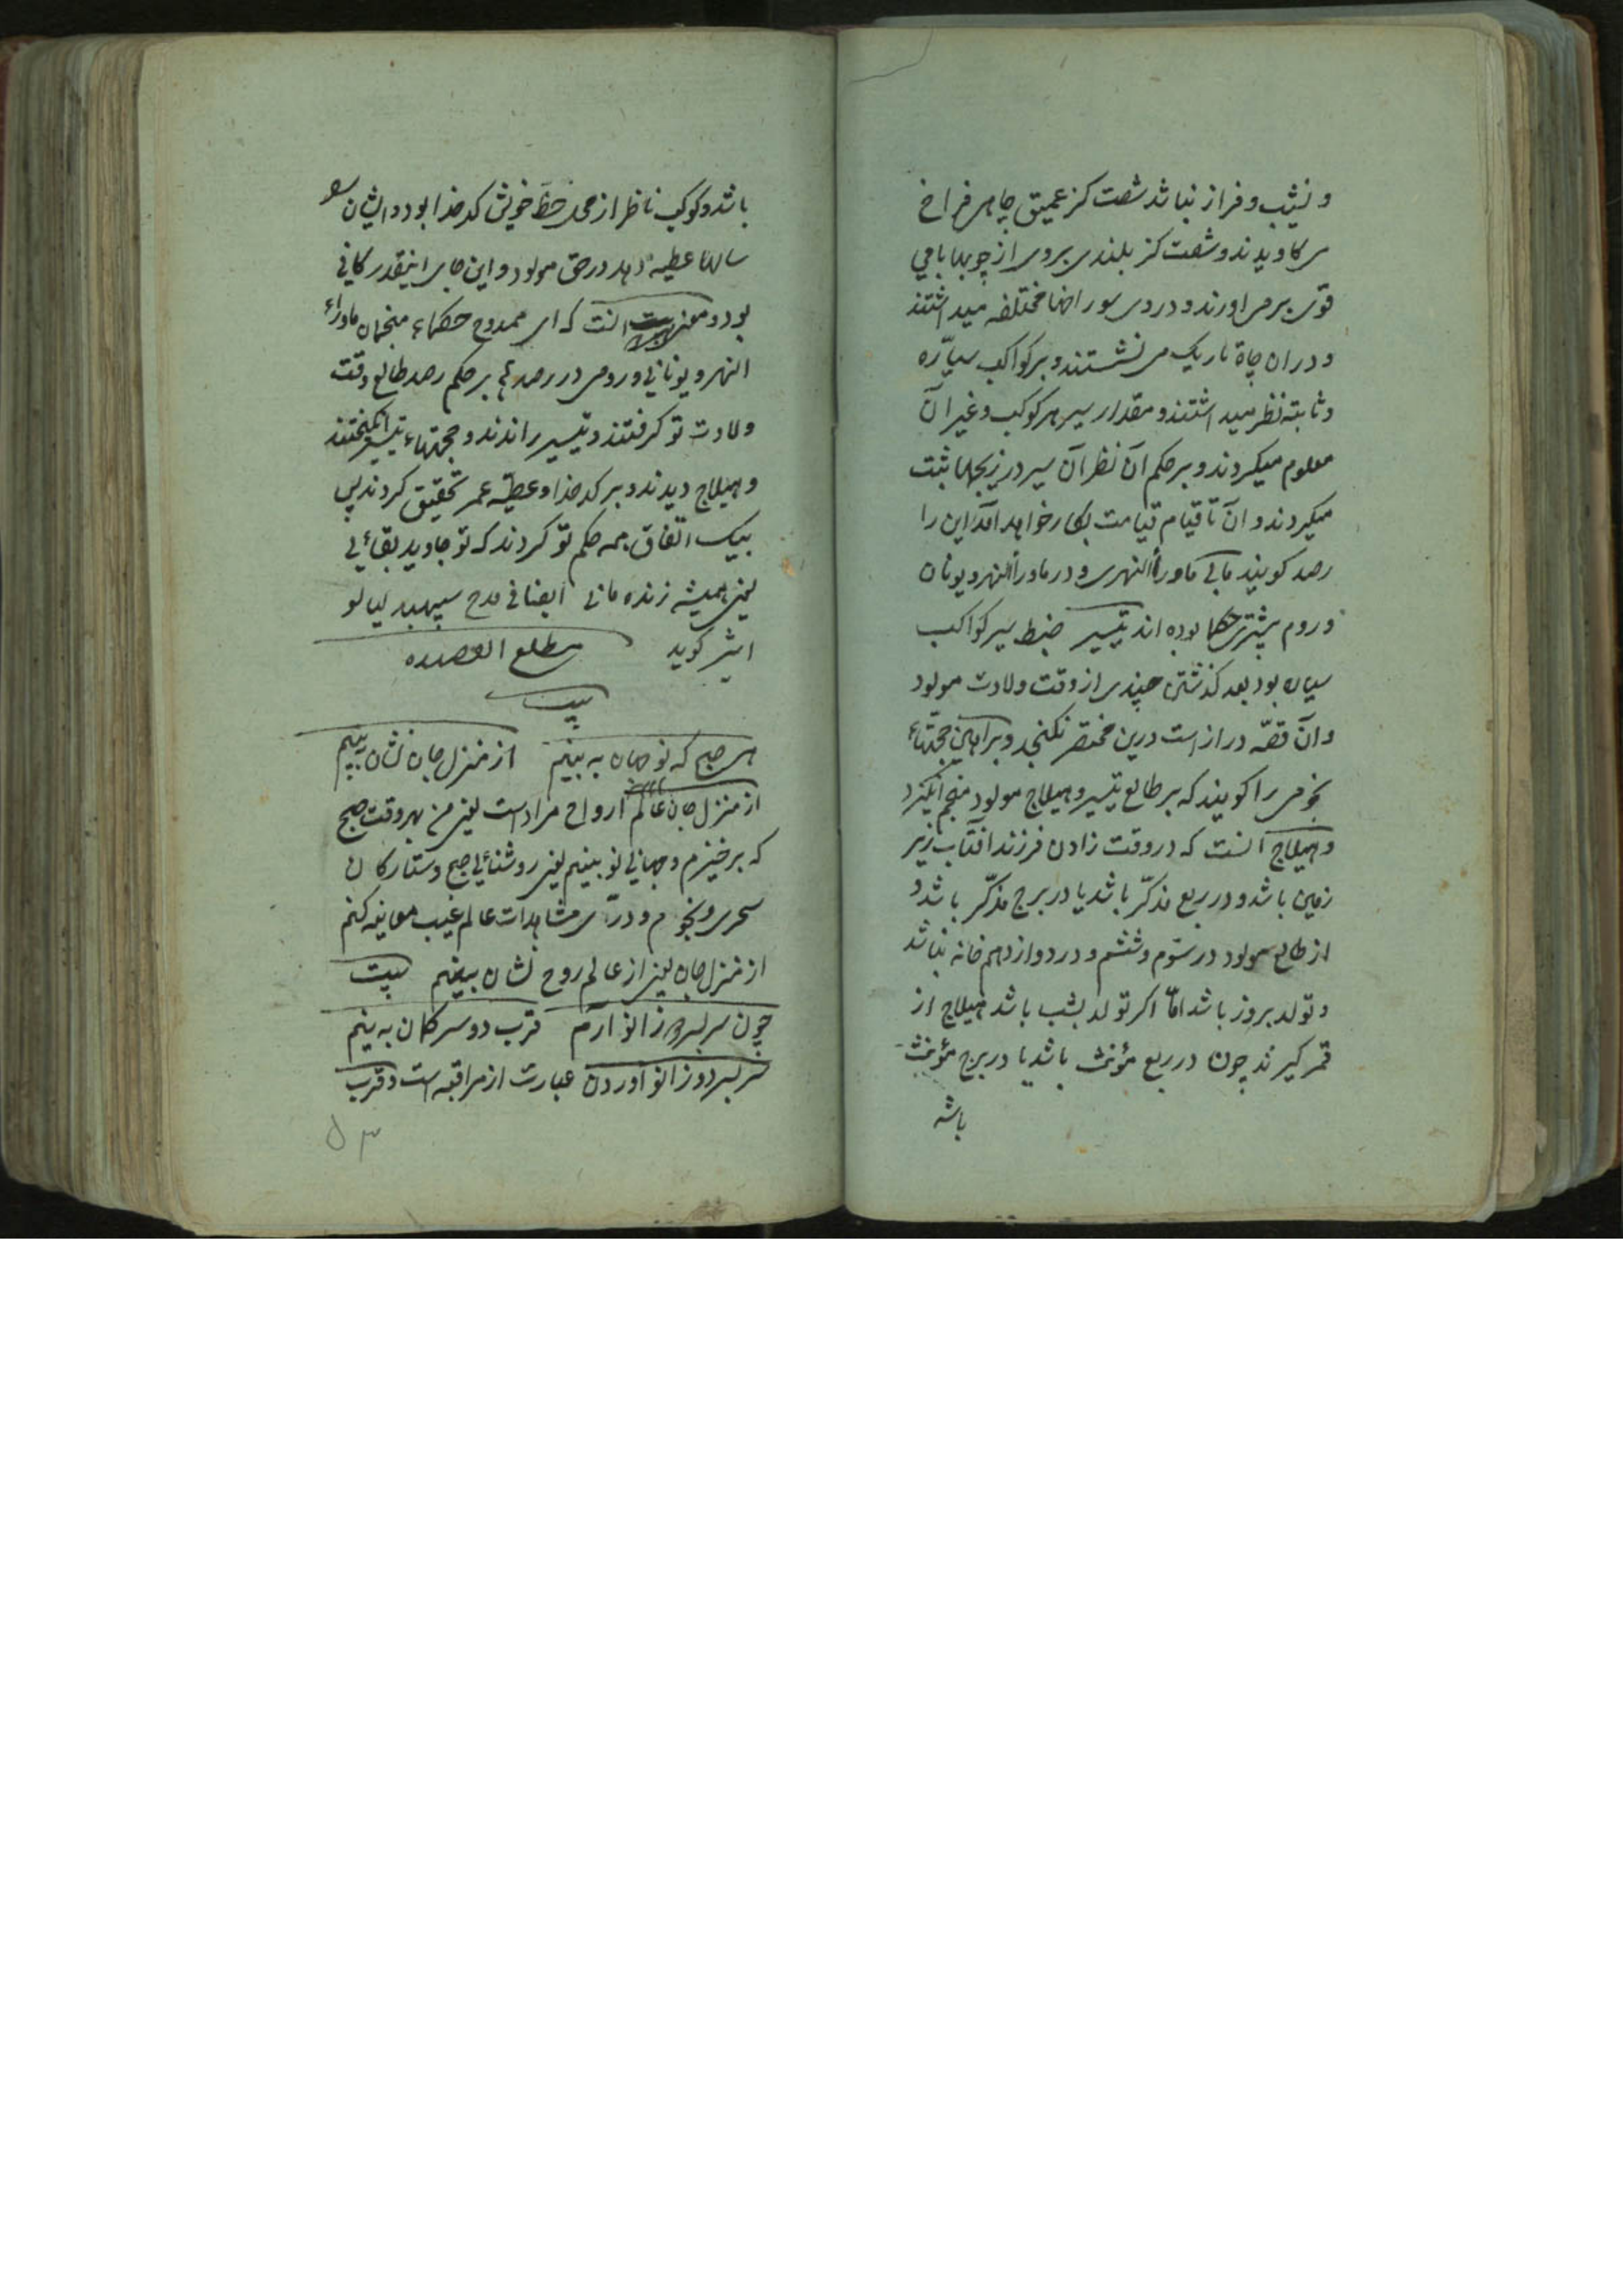 و نشیب و فراز نباشد شصت کز عمیق چاهی فراخ
می کاویدند و شصت کز بلندی بروی از چوبها بامی
قوی برمی اوردند و در وی سوراخها مختلفه میداشتند
و دران چاه تاریک می نشستند و بر کواکب سیاره
و ثابته نظر میداشتند و مقدار سیر هر کوکب و غیر آن
معلوم میکردند و بر حکم آن نظر آن سیر در زیجها ثبت
میکردند و آن تا قیام قیامت بکار خواهد آمد این را
رصد کویند مالی ماورأالنهری و در ماورأالنهر و یونان
و روم بیشتر حکما بوده اند تیسیر ضبط سیر کواکب
سیاره بود بعد کذشتن چندی از وقت ولادت مولود
و آن قصّه دراز است درین مختصر نکنجد و براهین حجّتهاء
نجومی را کویند که بر طالع تیسیر و هیلاج مولود منجم انکیزد
و هیلاج آنست که در وقت زادن فرزند افتاب زیر
زمین باشد و در ربع مذکّر باشد یا در برج مذکّر باشد و
از طالع مولود در سوّم و ششم و در دوازدهم خانه نباشد
و تولد بروز باشد امّا اکر تولد بشب باشد هیلاج از
قمر کیرند چون در ربع مؤنث باشد یا در برج مؤنث
باشد
باشد و کوکب ناظر از محل حظّ خویش کدخدا بود و ایشان
سالها عطیه دهد در حق مولود و این جای اینقدر کافی
بود و معنی آنست که ای ممدوح حکماء منجمان ماوراء
النهر و یونانی و رومی در رصد بر حکم رصد طالع وقت
ولادت تو کرفتند و تیسیر راندند و حجتهاء تیسیر انکیختند
و هیلاج دیدند و بر کدخدا و عطیّه عمر تحقیق کردند پس
بیک اتفاق همه حکم تو کردند که تو جاوید بقائی
یعنی همیشه زنده مانی ایضا فی مدح سپهبد لیالو
اشیر کوید مطلع القصیده
بیت
هر صبح که نو جهان به بینم از منزل جان نشان بینم
از منزل جان عالم ارواح مراد است یعنی من بهر وقت صبح
که برخیزم و جهانی نو بینیم یعنی روشنائی صبح و ستارکان
سحری و نجوم و درّاری مشاهدات عالم غیب معاینه کنم
از منزل جان یعنی از عالم روح نشان بینم بیت
چون سر بسر زانو آرم قرب دو سر کمان به بینم
سر بسر دو زانو اوردن عبارت از مراقبه است و قرب
۵۳